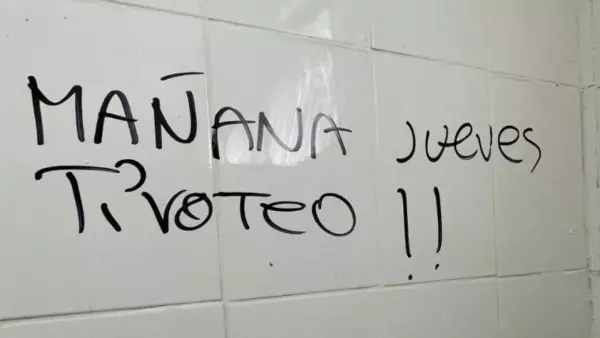 MAÑANA Jueves
TiroTeo !!